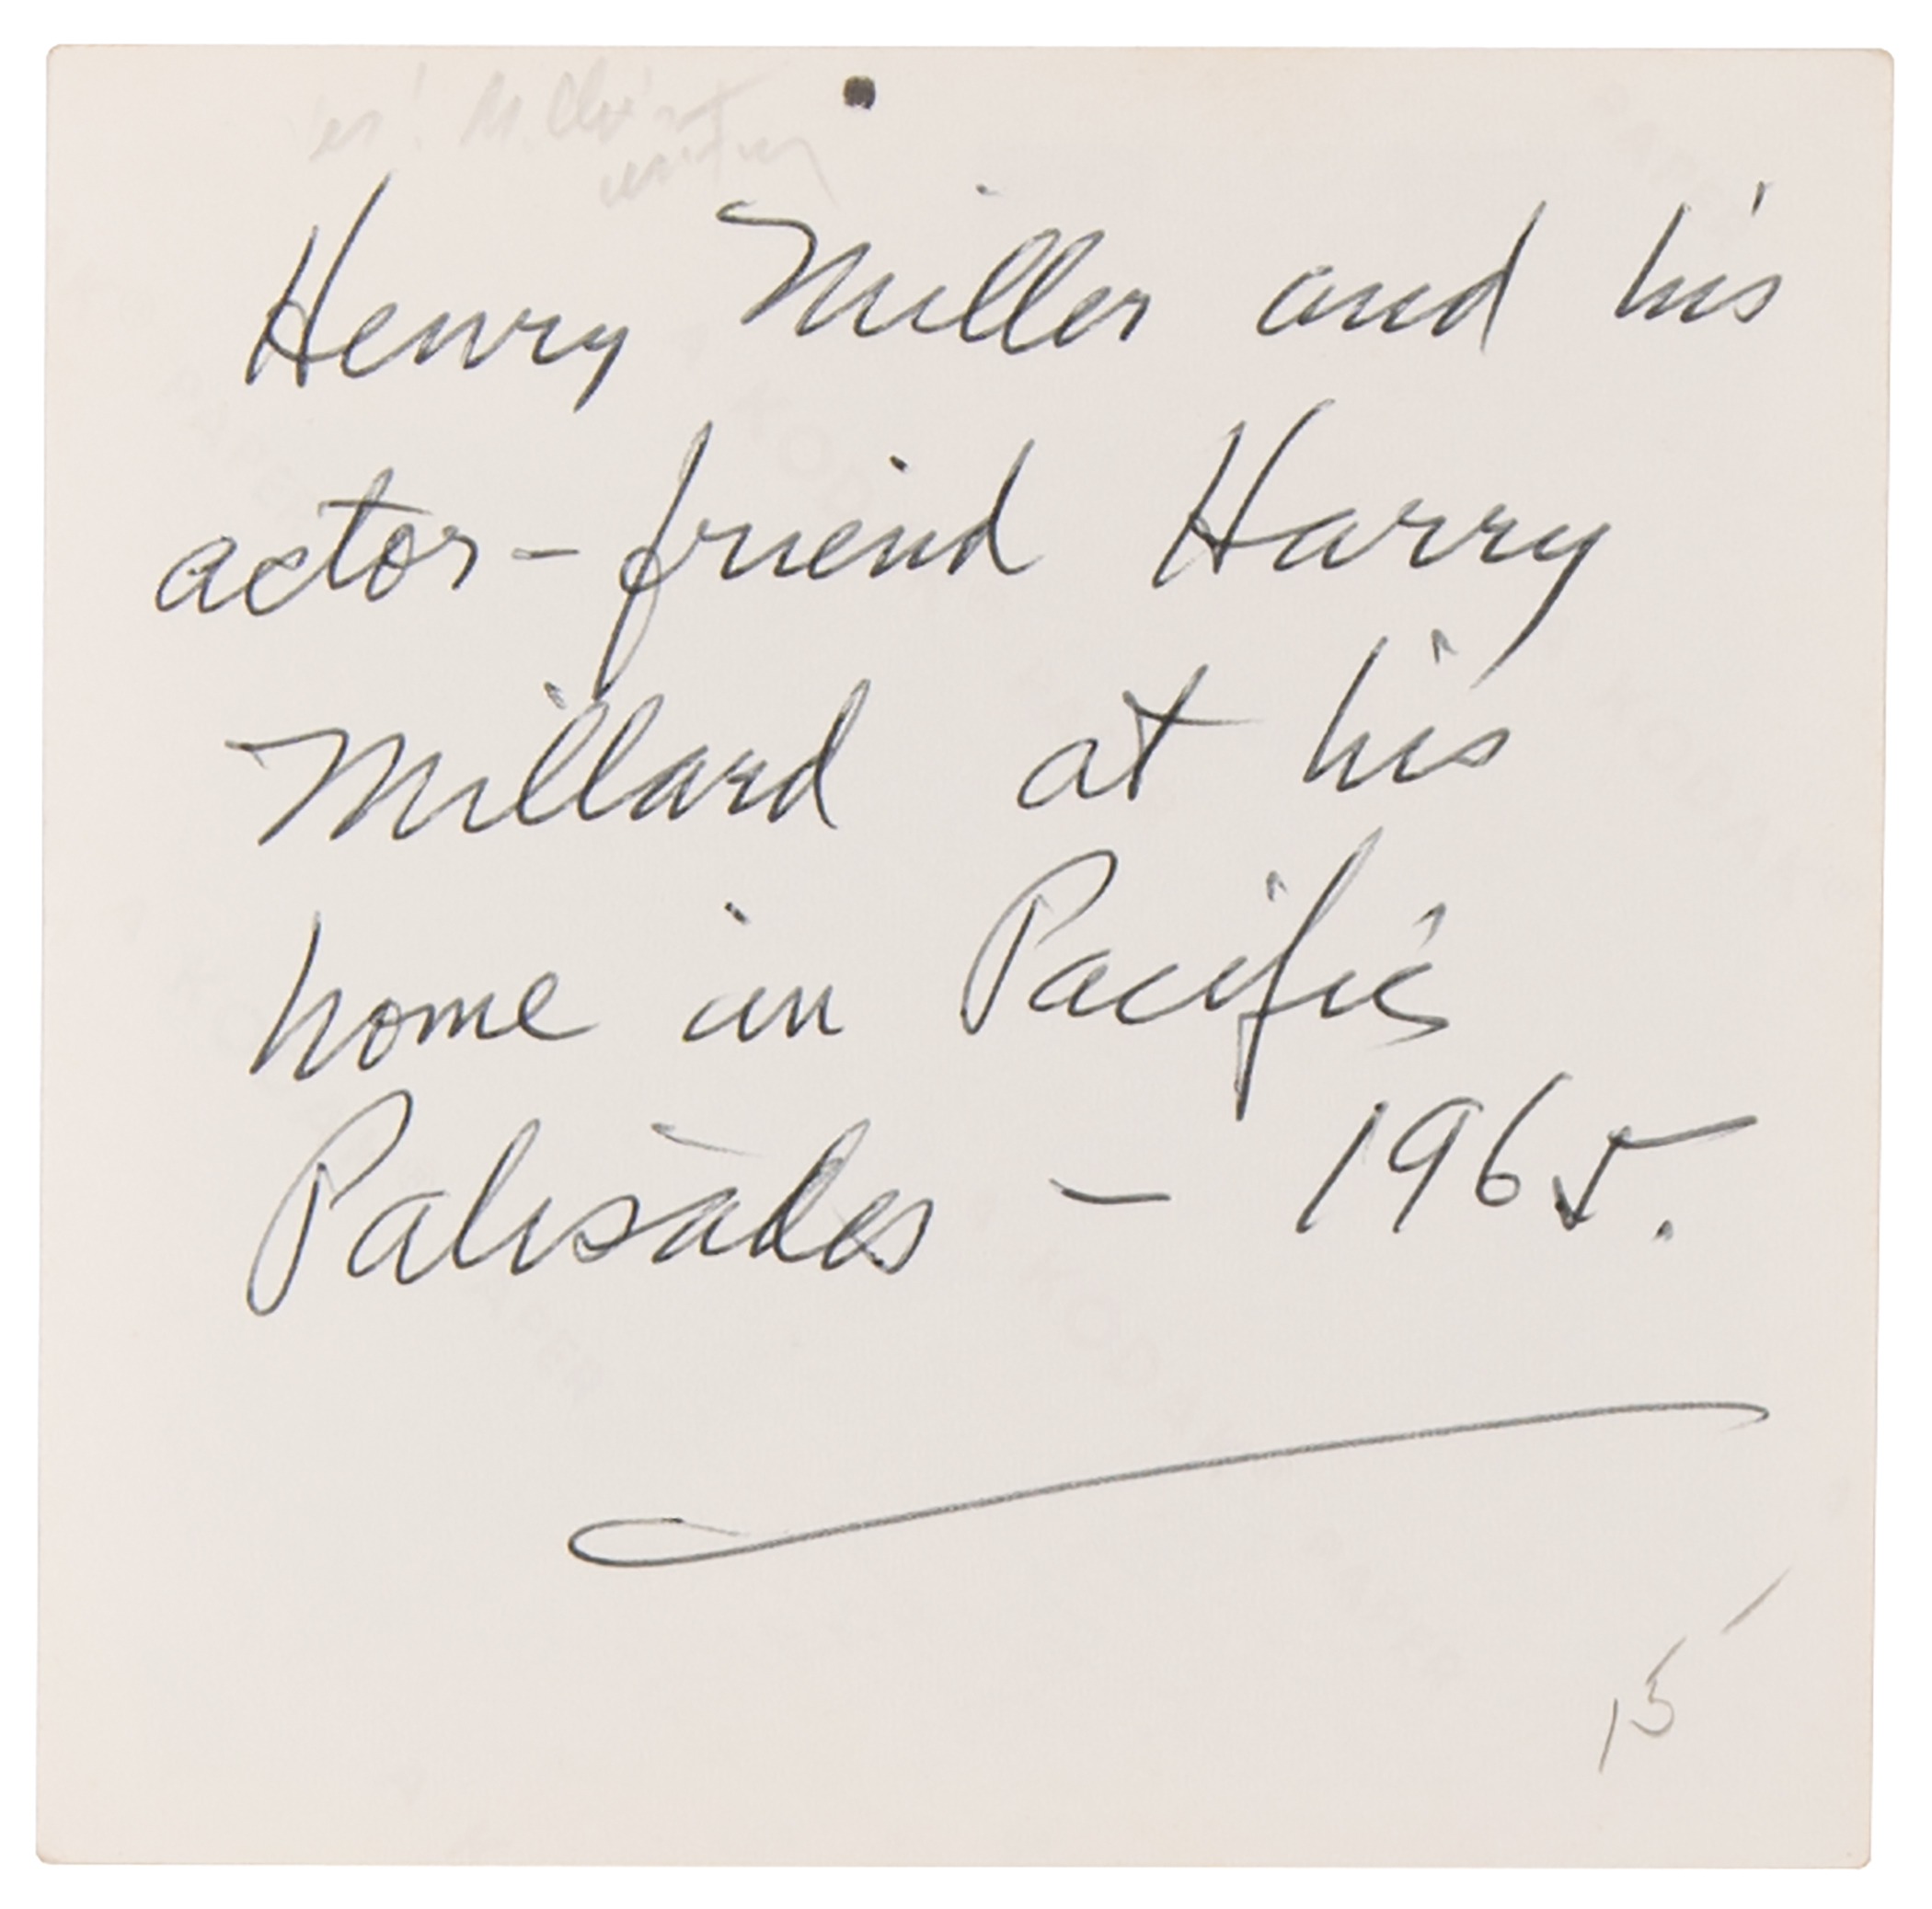 Henry Miller and his
actor-friend Harry
Millard at his
home in Pacific
Palisades — 1965.
15